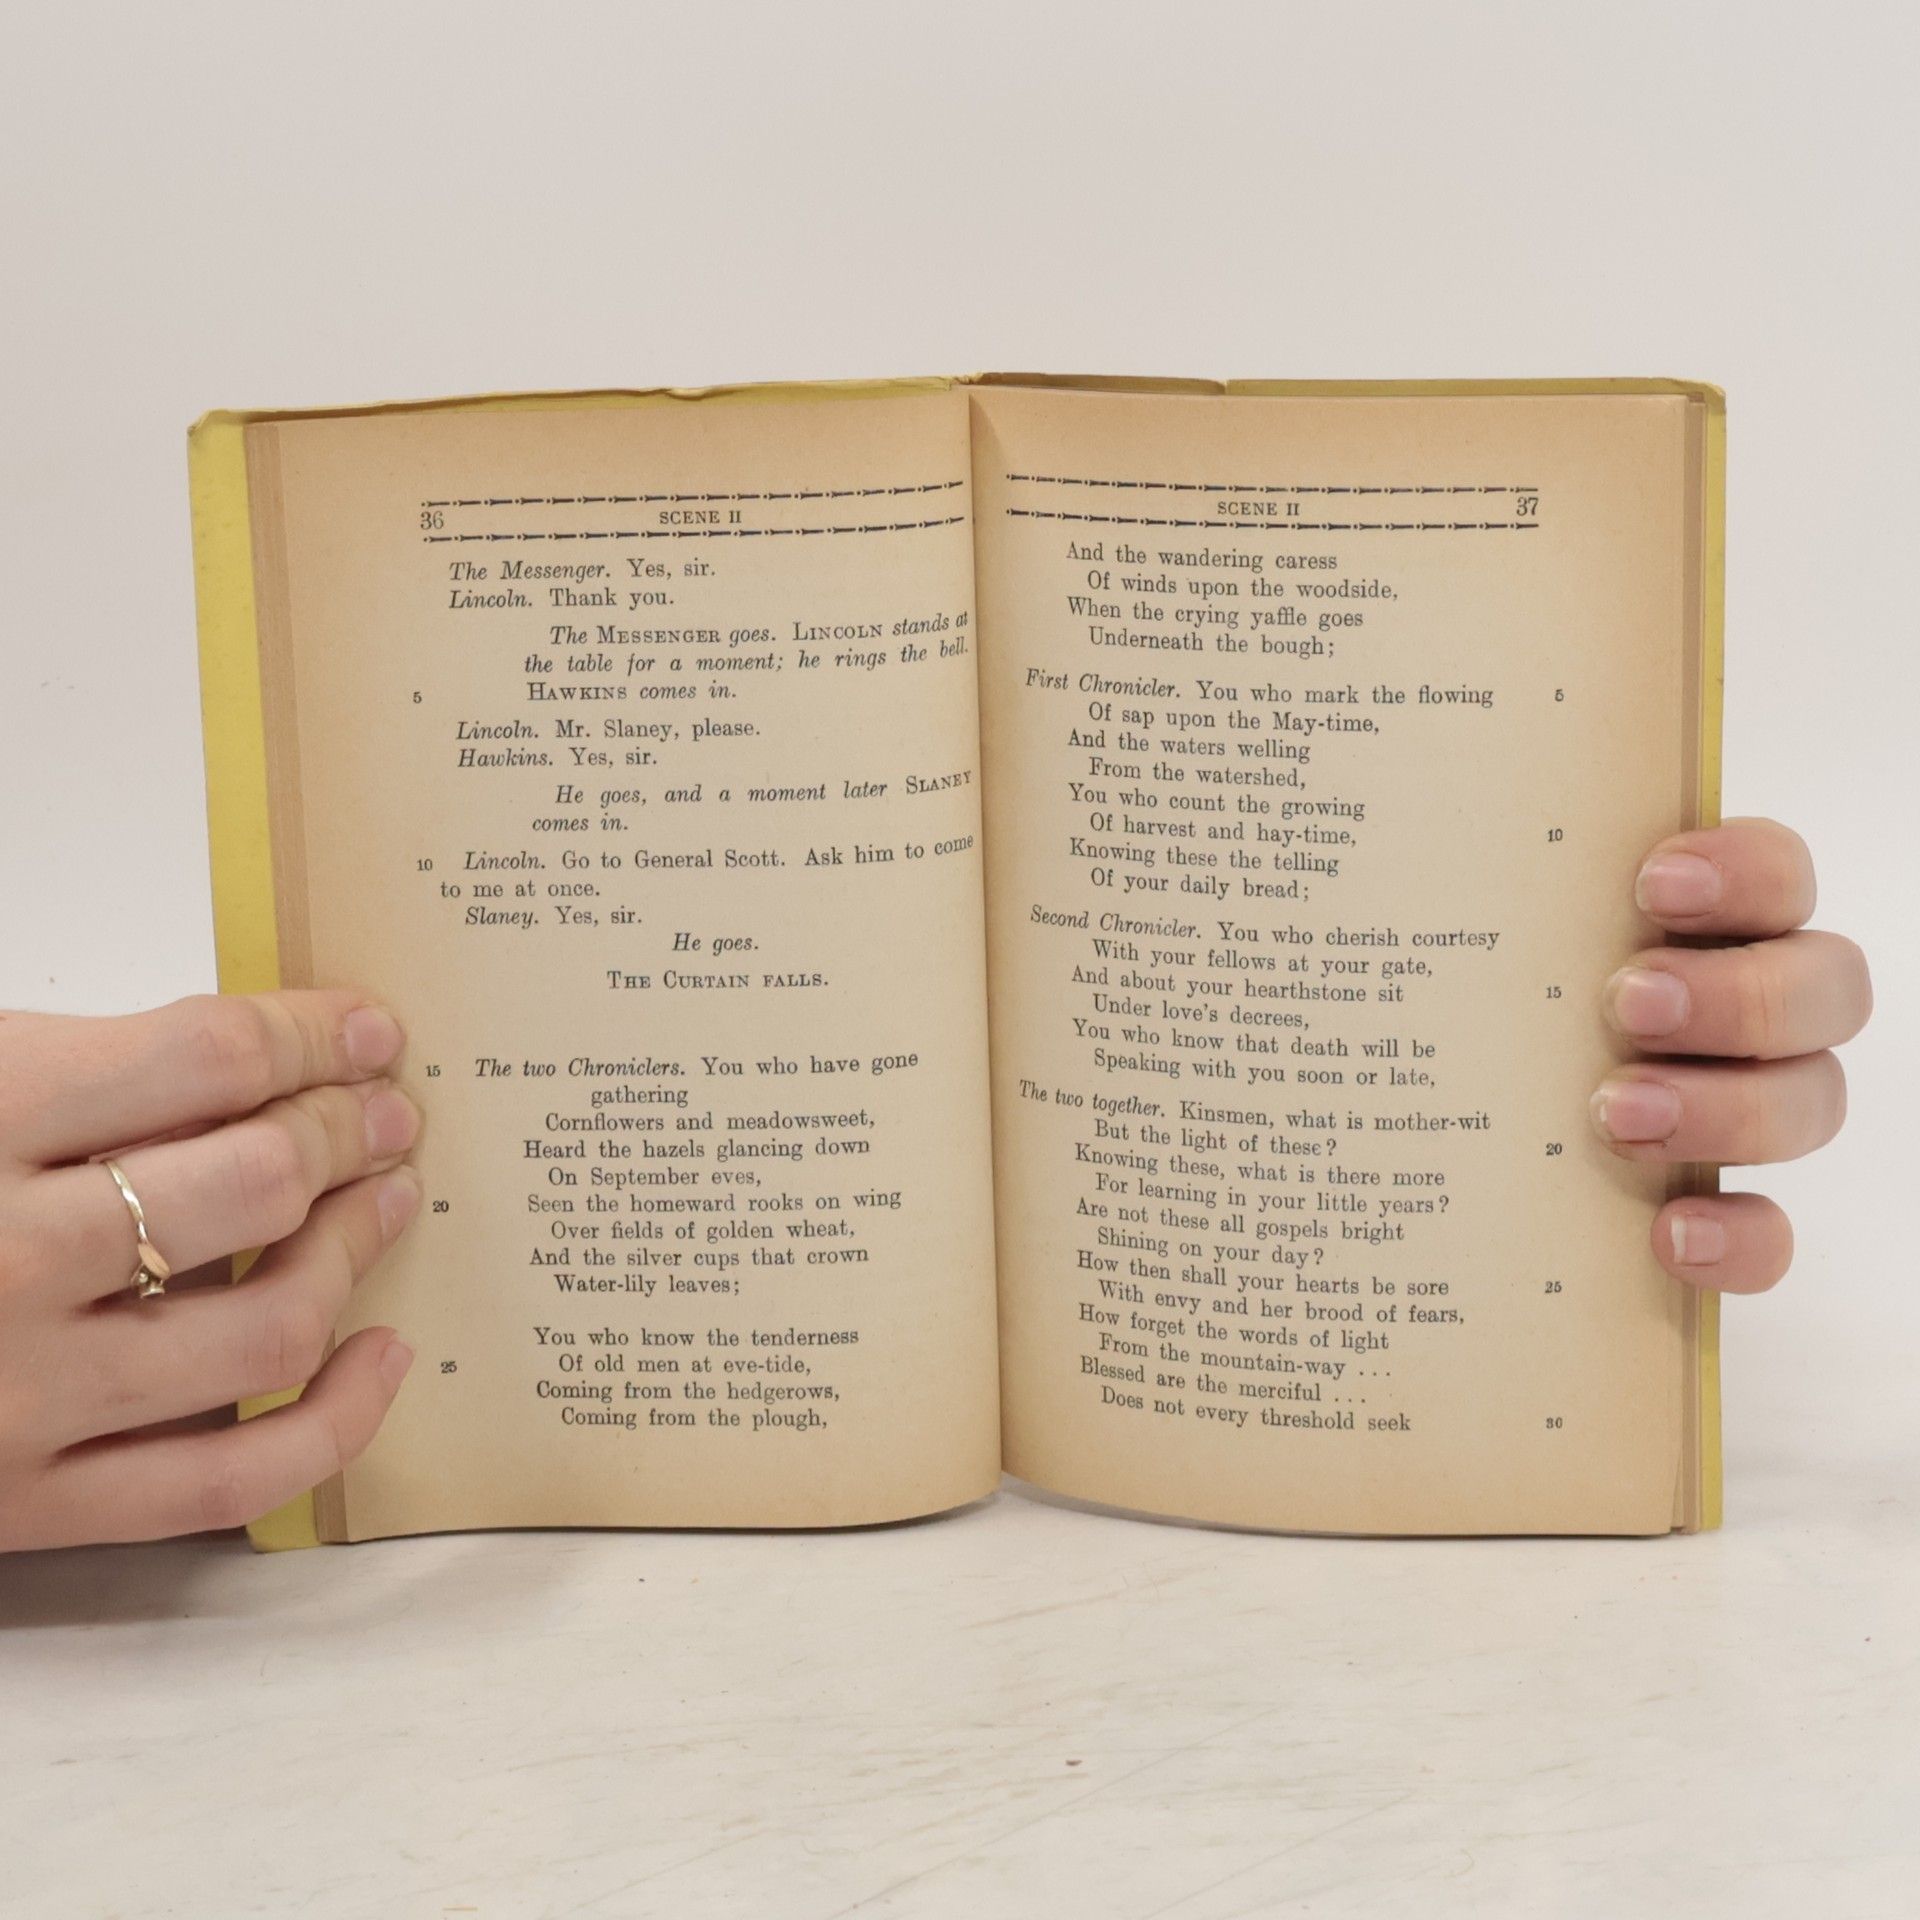 36 SCENE II
The Messenger. Yes, sir.
Lincoln. Thank you.
The MESSENGER goes. LINCOLN stands at
the table for a moment; he rings the bell.
5 HAWKINS comes in.
Lincoln. Mr. Slaney, please.
Hawkins. Yes, sir.
He goes, and a moment later SLANEY
comes in.
10 Lincoln. Go to General Scott. Ask him to come
to me at once.
Slaney. Yes, sir.
He goes.
THE CURTAIN FALLS.
15 The two Chroniclers. You who have gone
gathering
Cornflowers and meadowsweet,
Heard the hazels glancing down
On September eves,
20 Seen the homeward rooks on wing
Over fields of golden wheat,
And the silver cups that crown
Water-lily leaves;
You who know the tenderness
25 Of old men at eve-tide,
Coming from the hedgerows,
Coming from the plough,
SCENE II 37
And the wandering caress
Of winds upon the woodside,
When the crying yaffle goes
Underneath the bough;
First Chronicler. You who mark the flowing 5
Of sap upon the May-time,
And the waters welling
From the watershed,
You who count the growing
Of harvest and hay-time, 10
Knowing these the telling
Of your daily bread;
Second Chronicler. You who cherish courtesy
With your fellows at your gate,
And about your hearthstone sit 15
Under love's decrees,
You who know that death will be
Speaking with you soon or late,
The two together. Kinsmen, what is mother-wit
But the light of these? 20
Knowing these, what is there more
For learning in your little years?
Are not these all gospels bright
Shining on your day?
How then shall your hearts be sore 25
With envy and her brood of fears,
How forget the words of light
From the mountain-way . . .
Blessed are the merciful . . .
Does not every threshold seek 30